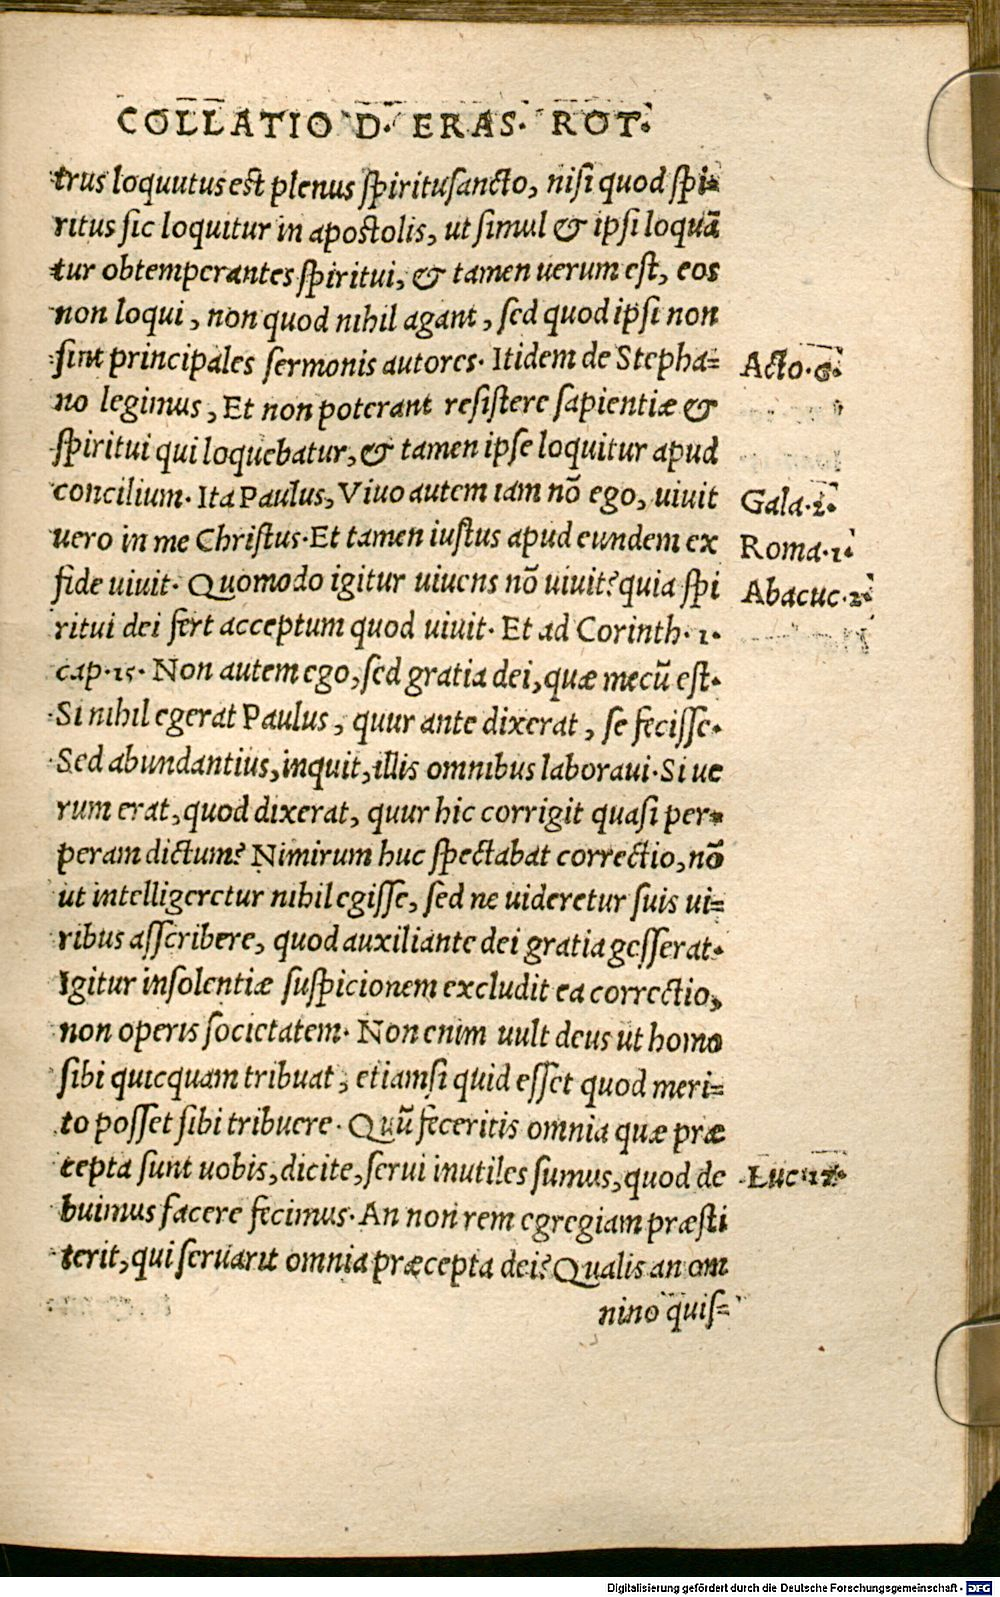 COLLATIO D. ERAS. ROT.
trus loquutus est plenus spiritusancto, nisi quod spi-
ritus sic loquitur in apostolis, ut simul & ipsi loquā
tur obtemperantes spiritui, & tamen uerum est, eos
non loqui, non quod nihil agant, sed quod ipsi non
sint principales sermonis autores. Itidem de Stepha= Acto.6.
no legimus, Et non poterant resistere sapientiæ &
spiritui qui loquebatur, & tamen ipse loquitur apud
concilium. Ita Paulus, Viuo autem iam nō ego, uiuit Gala.2.
uero in me Christus. Et tamen iustus apud eundem ex Roma.1.
fide uiuit. Quomodo igitur uiuens nō uiuit? quia spi Abacuc.2.
ritui dei fert acceptum quod uiuit. Et ad Corinth. 1.
cap. 15. Non autem ego, sed gratia dei, quæ mecū est.
Si nihil egerat Paulus, quur ante dixerat, se fecisse.
Sed abundantius, inquit, illis omnibus laboraui. Si ue
rum erat, quod dixerat, quur hic corrigit quasi per-
peram dictum? Nimirum huc spectabat correctio, nō
ut intelligeretur nihil egisse, sed ne uideretur suis ui=
ribus asscribere, quod auxiliante dei gratia gesserat.
Igitur insolentiæ suspicionem excludit ea correctio,
non operis societatem. Non enim uult deus ut homo
sibi quicquam tribuat, etiamsi quid esset quod meri=
to posset sibi tribuere. Quū feceritis omnia quæ præ
cepta sunt uobis, dicite, serui inutiles sumus, quod de Luc.17.
buimus facere fecimus. An non rem egregiam præsti
terit, qui seruarit omnia præcepta dei? Qualis an om
nino quis=
Digitalisierung gefördert durch die Deutsche Forschungsgemeinschaft - DFG